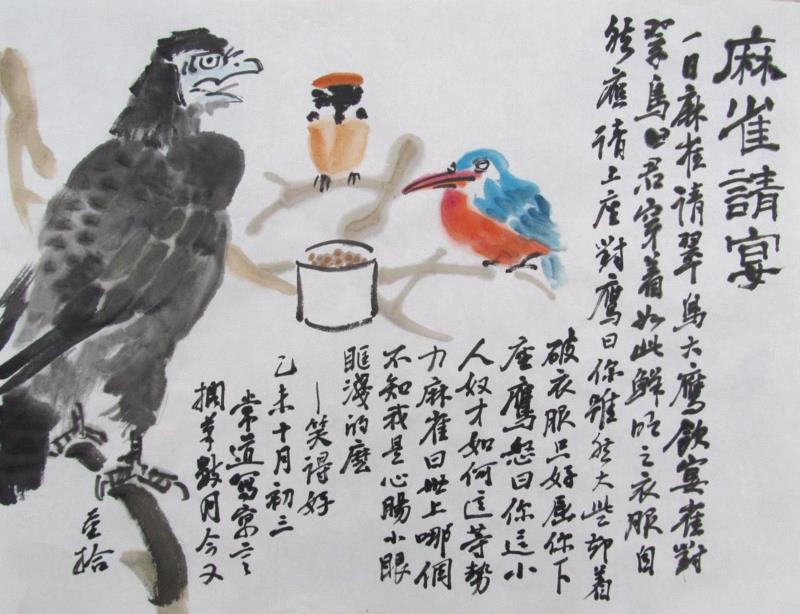 麻雀請宴
一日麻雀請翠鳥大鷹飲宴雀對
翠鳥曰君穿着如此鮮明之衣服自
然應請上座對鷹曰你雖然大些却着
破衣服只好屈你下
座鷹怒曰你這小
人奴才如何這等勢
力麻雀曰世上哪個
不知我是心腸小眼
眶淺的麼
—笑得好
己未十月初三
常道寫寓言
擱筆數月今又
重拾